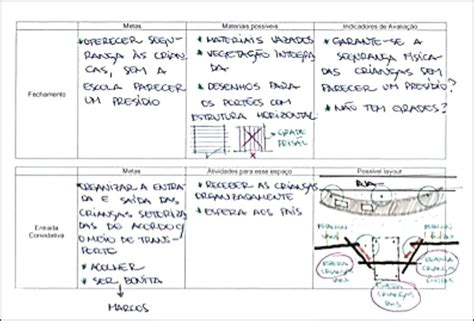 Metas
Materiais possíveis
Indicadores de Avaliação
Fechamento
* OFERECER SEGU-
RANÇA ÀS CRIAN-
CAS, SEM A
ESCOLA PARECER
UM PRESÍDIO
* MATERIAIS VAZADOS
* VEGETAÇÃO INTEGRA
DA
* DESENHOS PARA
OS PORTÕES COM
ESTRUTURA HORIZONTAL
GRADE
* GARANTE-SE A
SEGURANÇA FÍSICA
DAS CRIANÇAS SEM
PARECER UM PRESÍDIO?
* NÃO TEM GRADES?
Metas
Atividades para esse espaço
Possível layout
Entrada
Convidativa
ORGANIZAR A ENTRA
DA E SAÍDA DAS
CRIANÇAS SETORIZA
DAS DE ACORDO C/
O MEIO DE TRANS-
PORTE
* ACOLHER
* SER BONITA
MARCOS
* RECEBER AS CRIANÇAS
ORGANIZADAMENTE
* ESPERA AOS PAIS
RUA
ESPERA
CRIANÇAS
ESPERA
CRIANÇAS
ESPERA
CRIANÇAS